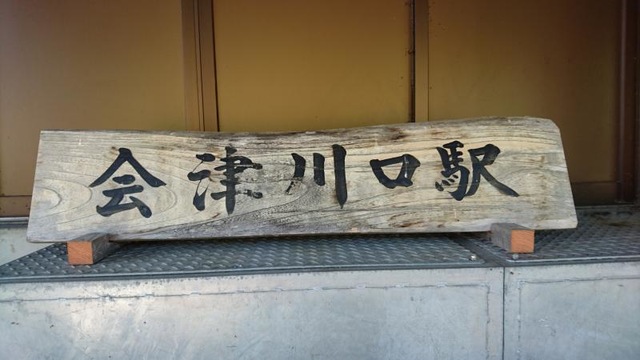 会津川口駅